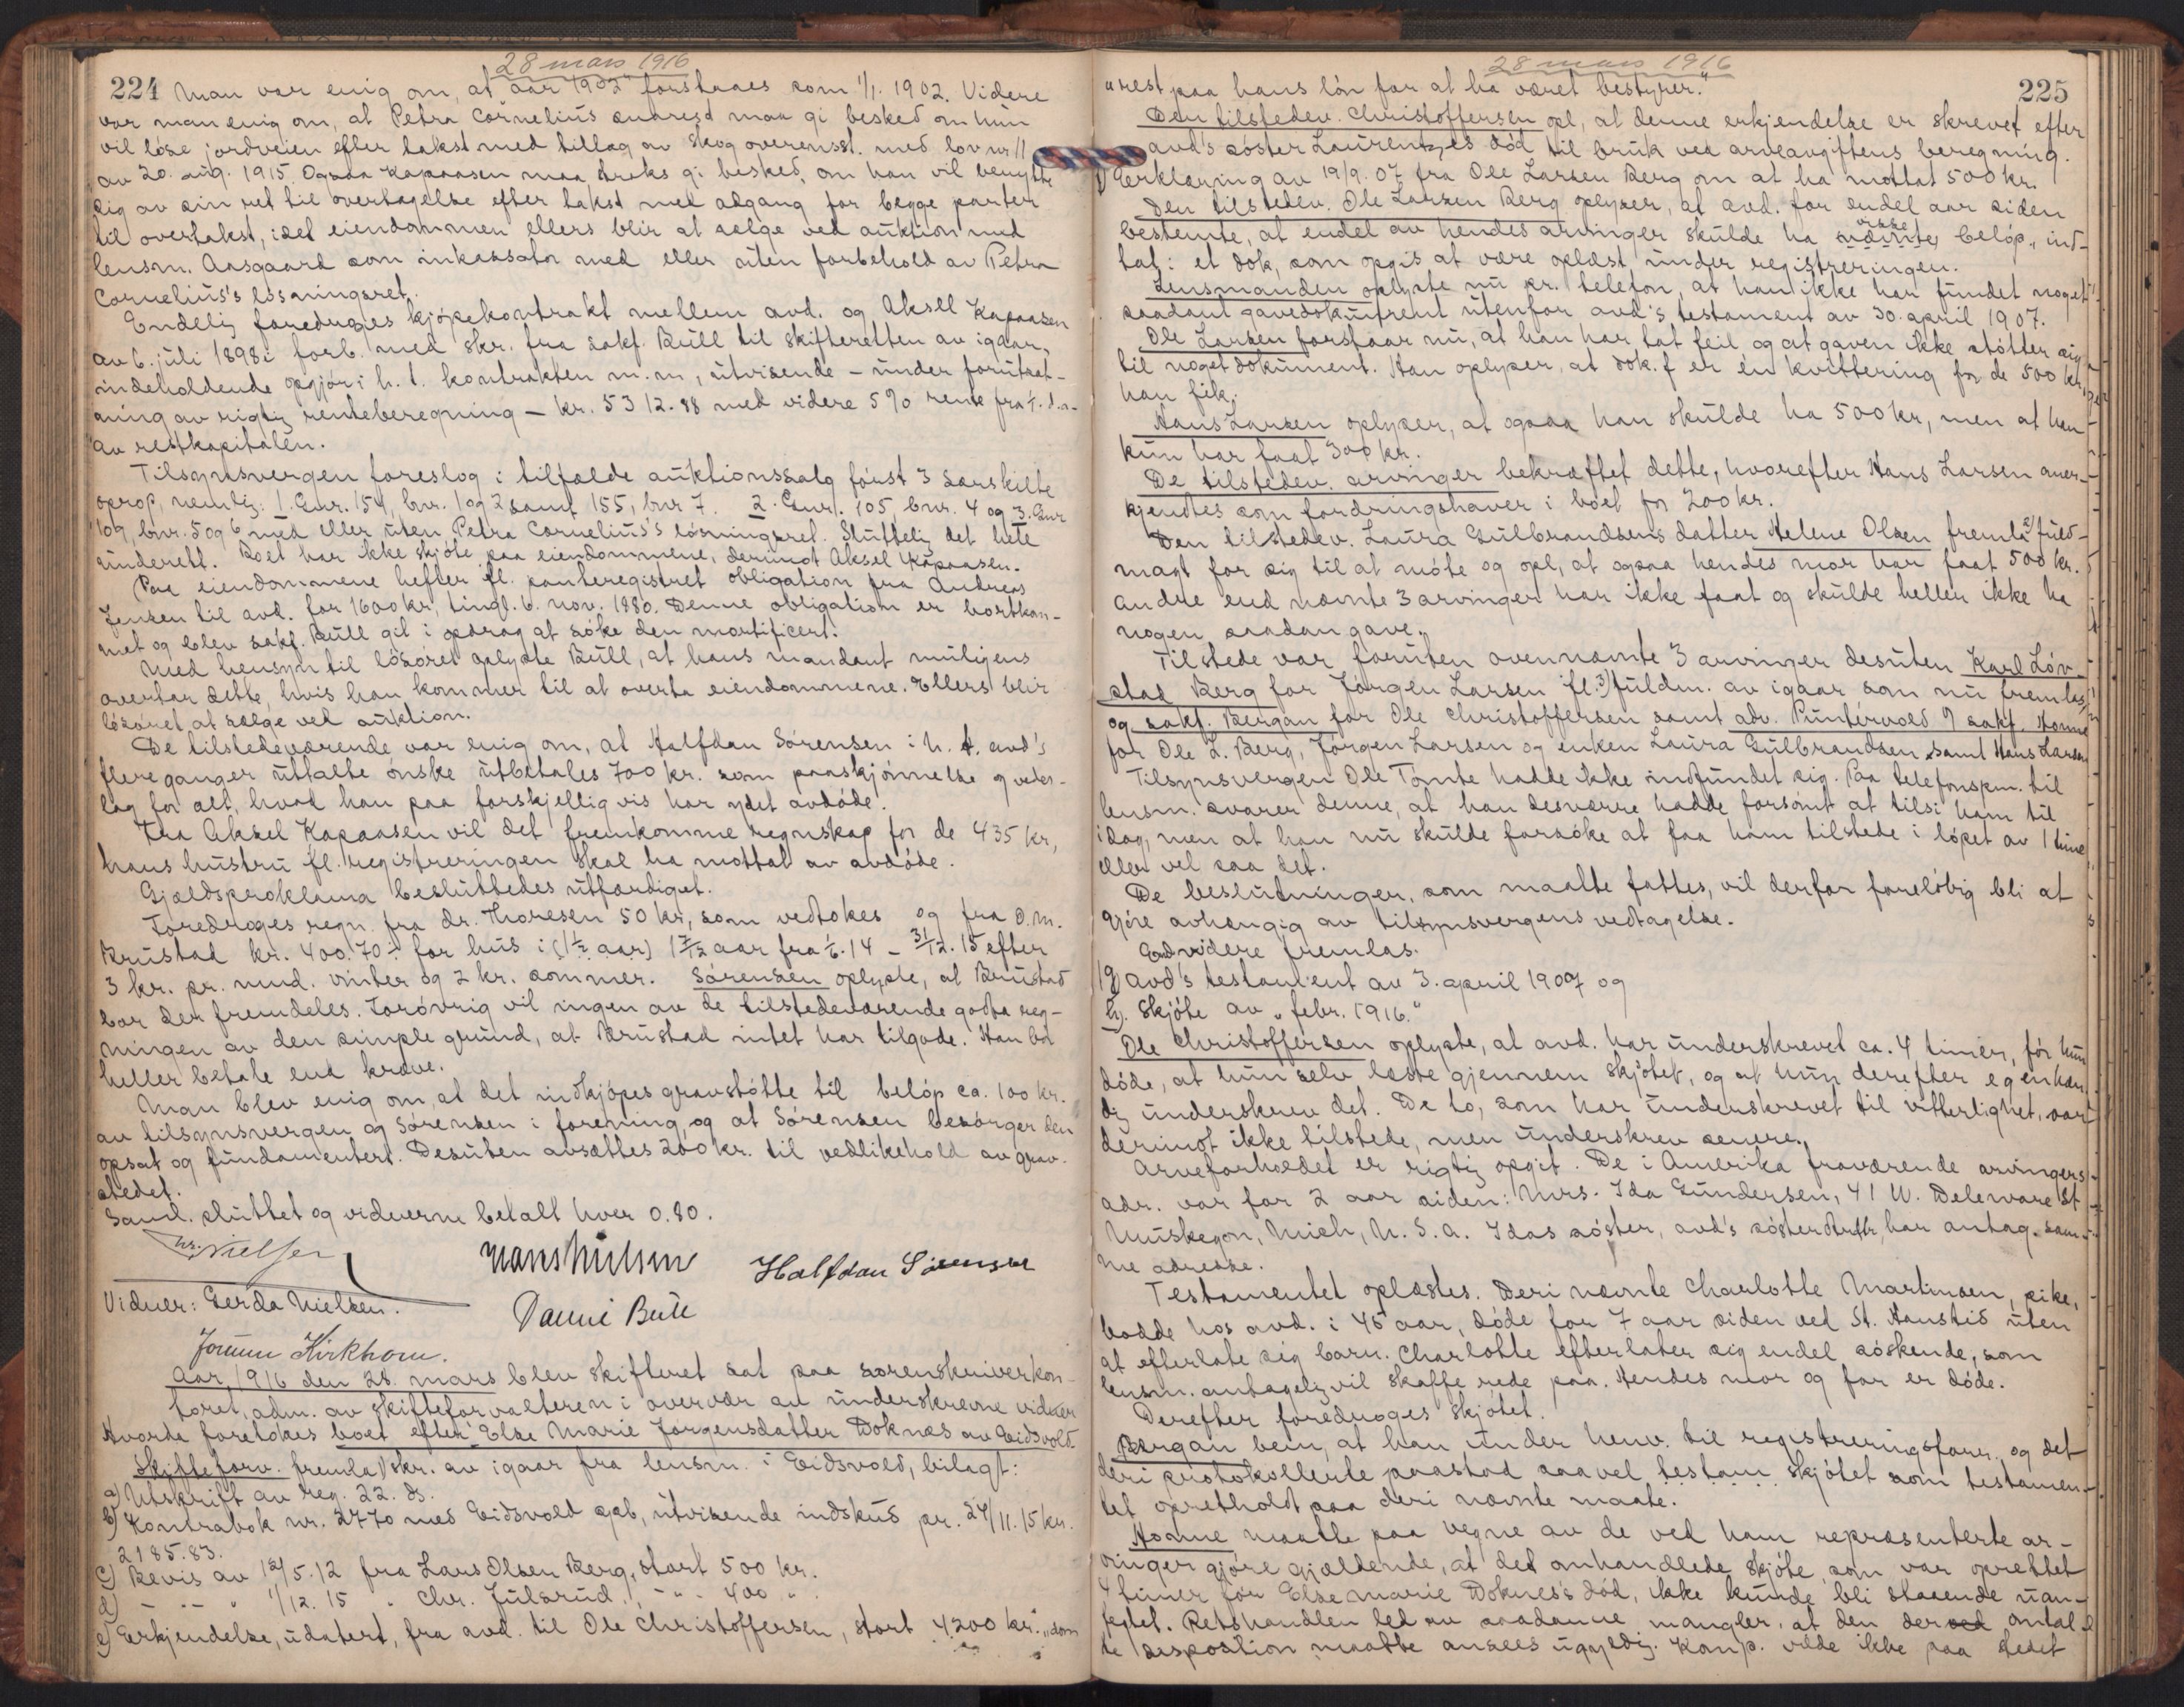 28 mars 1916
224 Man var enig om, at "aar 1902" forstaaes som 1/1. 1902. Videre
var man enig om, at Petra Cornelius snarest maa gi besked om hun
vil löse jordveien efter takst med tillæg av skog overensst. med lov nr 11
av 20. aug. 1915. Ogsaa Kapaasen maa straks gi besked, om han vil benytte
sig av sin ret til overtagelse efter takst med adgang for begge parter
til overtakst, idet eiendommen ellers blir at sælge ved auktion med
lensm. Aasgaard som inkassator med eller uten forbehold av Petra
Cornelius's lösningsret.
Endelig foredroges kjöpekontrakt mellem avd. og Aksel Kapaasen
av 6. juli 1898 i forb. med skr. fra sakf. Bull til skifteretten av igaar,
indeholdende opgjör i h. t. kontrakten m. m, utvisende – under forutsæt-
ning av rigtig renteberegning – kr. 5312.88 med videre 5% rente fra 1. d.m.
av restkapitalen.
Tilsynsvergen foreslog i tilfælde auktionssalg först 3 særskilte
oprop, nemlig: 1. Gnr. 154, bnr. 1 og 2 samt 155, bnr 7. 2. Gnr. 105, bnr. 4 og 3. Gnr
109, bnr. 5 og 6 med eller uten Petra Cornelius's lösningsret. Sluttelig det hele
underett. Boet har ikke skjöte paa eiendommene, derimot Aksel Kapaasen.
Paa eiendommene hefter fl. panteregistret obligation fra Andreas
Jensen til avd. for 1600 kr, tingl. 6. nov. 1880. Denne obligation er bortkom-
met og blev sakf. Bull git i opdrag at söke den mortificert.
Med hensyn til lösöret oplyste Bull, at hans mandant muligens
overtar dette, hvis han kommer til at overta eiendommene. Ellers blir
lösöret at sælge ved auktion.
De tilstedeværende var enig om, at Halfdan Sörensen i h. t. avd's
flere ganger uttalte önske utbetales 700 kr. som paaskjönnelse og veder-
lag for alt, hvad han paa forskjellig vis har ydet avdöde.
Fra Aksel Kapaasen vil det fremkomme regnskap for de 435 kr,
hans hustru fl. registreringen skal ha mottat av avdöde.
Gjældsproklama besluttedes utfærdiget.
Foredroges regn. fra dr. Thoresen 50 kr, som vedtokes og fra O. M.
Brustad kr. 400.70 for hus i (1 1/2 aar) 1 7/12 aar fra 1/6. 14 – 31/12. 15 efter
3 kr. pr. mnd. vinter og 2 kr. sommer. Sörensen oplyste, at Brustad
bor der fremdeles. Foróvrig vil ingen av de tilstedeværende godta reg-
ningen av den simple grund, at Brustad intet har tilgode. Han bör
heller betale end kræve.
Man blev enig om, at det indkjöpes gravstötte til belöp ca. 100 kr.
av tilsynsvergen og Sörensen i forening, og at Sörensen besörger den
opsat og fundamentert. Desuten avsættes 200 kr. til vedlikehold av grav-
stedet.
Saml. sluttet og vidnerne betalt hver 0.80.
Nielsen Hans Nielsen Halfdan Sörensen
Vidner: Gerda Nielsen. Bull
Kirkhorn.
Aar 1916 den 28. mars blev skifteret sat paa sorenskriverkon-
toret, adm. av skifteforvalteren i overvær av underskrevne vidner
Hvorda foretokes boet efter Else Marie Jörgensdatter Doknæs av Eidsvold.
Skifteforv. fremla 1) skr. av igaar fra lensm. i Eidsvold, bilagt:
a) Utskrift av reg. 22. ds.
b) Kontrabok nr. 2770 med Eidsvold spb, utvisende indskud pr. 24/11. 15 kr.
2185.83.
c) Bevis av 12/5. 12 fra Lars Olsen Berg, stort 500 kr.
d) – " – " 1/12. 15 " Chr. Julsrud, – " – 400 "
e) Erkjendelse, udatert, fra avd. til Ole Christoffersen, stort 4200 kr. "som
28 mars 1916
225
"rest paa hans lön for at ha været bestyrer."
Den tilstedev. Christoffersen opl, at denne erkjendelse er skrevet efter
avd's söster Laurentzes död til bruk ved arveavgiftens beregning.
f) Erklæring av 19/9. 07 fra Ole Larsen Berg om at ha mottat 500 kr.
Den tilstedev. Ole Larsen Berg oplyser, at avd. for endel aar siden
bestemte, at endel av hendes arvinger skulde ha nævnte visse belöp, ind-
tat i et dok, som opgis at være oplæst under registreringen.
Lensmanden oplyste nu pr. telefon, at han ikke har fundet noget
saadant gavedokument utenfor avd's testament av 30. april 1907.
Ole Larsen forstaar nu, at han har tat feil og at gaven ikke stötter sig
til noget dokument. Han oplyser, at dok. f er én kvittering for de 500 kr,
han fik.
Hans Larsen oplyser, at ogsaa han skulde ha 500 kr, men at han
kun har faat 300 kr.
De tilstedev. arvinger bekræftet dette, hvorefter Hans Larsen aner-
kjendtes som fordringshaver i boet for 200 kr.
Den tilstedev. Laura Gulbrandsens datter Helene Olsen fremla 2) fuld-
magt for sig til at möte og opl, at ogsaa hendes mor har faat 500 kr.
Andre end nævnte 3 arvinger har ikke faat og skulde heller ikke ha
nogen saadan gave.
Tilstede var foruten ovennævnte 3 arvinger desuten Karl Löv-
stad Berg for Jörgen Larsen fl. 3) fuldm. av igaar som nu fremlas,
og sakf. Bergan for Ole Christoffersen samt adv. Puntervold v/ sakf. Homme
for Ole L. Berg, Jörgen Larsen og enken Laura Gulbrandsen samt Hans Larsen
Tilsynsvergen Ole Tömte hadde ikke indfundet sig. Paa telefonspm. til
lensm. svarer denne, at han desværre hadde forsömt at tilsi ham til
idag, men at han nu skulde forsöke at faa ham tilstede i löpet av 1 time
eller vel saa det.
De beslutninger, som maatte fattes, vil derfor forelöbig bli at
gjöre avhængig av tilsynsvergens vedtagelse.
Endvidere fremlas.
g) Avd's testament av 3. april 1907 og
h). Skjöte av "febr. 1916."
Ole Christoffersen oplyste, at avd. har underskrevet ca. 4 timer, för hun
döde, at hun selv læste gjennem skjötet, og at hun derefter egenhæn-
dig underskrev det. De to, som har underskrevet til vitterlighet, var
derimot ikke tilstede, men underskrev senere.
Arveforholdet er rigtig opgit. De i Amerika fraværende arvingers
adr. var for 2 aar siden: Mrs. Ida Gundersen, 41 W. Deleware St
Muskegon, Mich, U. S. A. Idas söster, avd's söster har antag. sam-
me adresse.
Testamentet oplæstes. Deri nævnte Charlotte Martinsen, pike,
bodde hos avd. i 45 aar, döde for 7 aar siden ved St. Hanstid uten
at efterlate sig barn. Charlotte efterlater sig endel söskende, som
lensm. antagelig vil skaffe rede paa. Hendes mor og far er döde.
Derefter foredroges skjötet.
Bergan bem, at han under henv. til registreringsforr. og det
deri protokollerte paastod saavel testam. skjötet som testamen-
tet opretholdt paa deri nævnte maate.
Homme maatte paa vegne av de ved ham repræsenterte ar-
vinger gjöre gjældende, at det omhandlede skjöte som var oprettet
4 timer för Else Marie Doknes's död, ikke kunde bli staaende uan-
fegtet. Retshandlen led av saadanne mangler, at den der ved omtal-
te disposition maatte ansees ugyldig. Komp. vilde ikke paa stedet